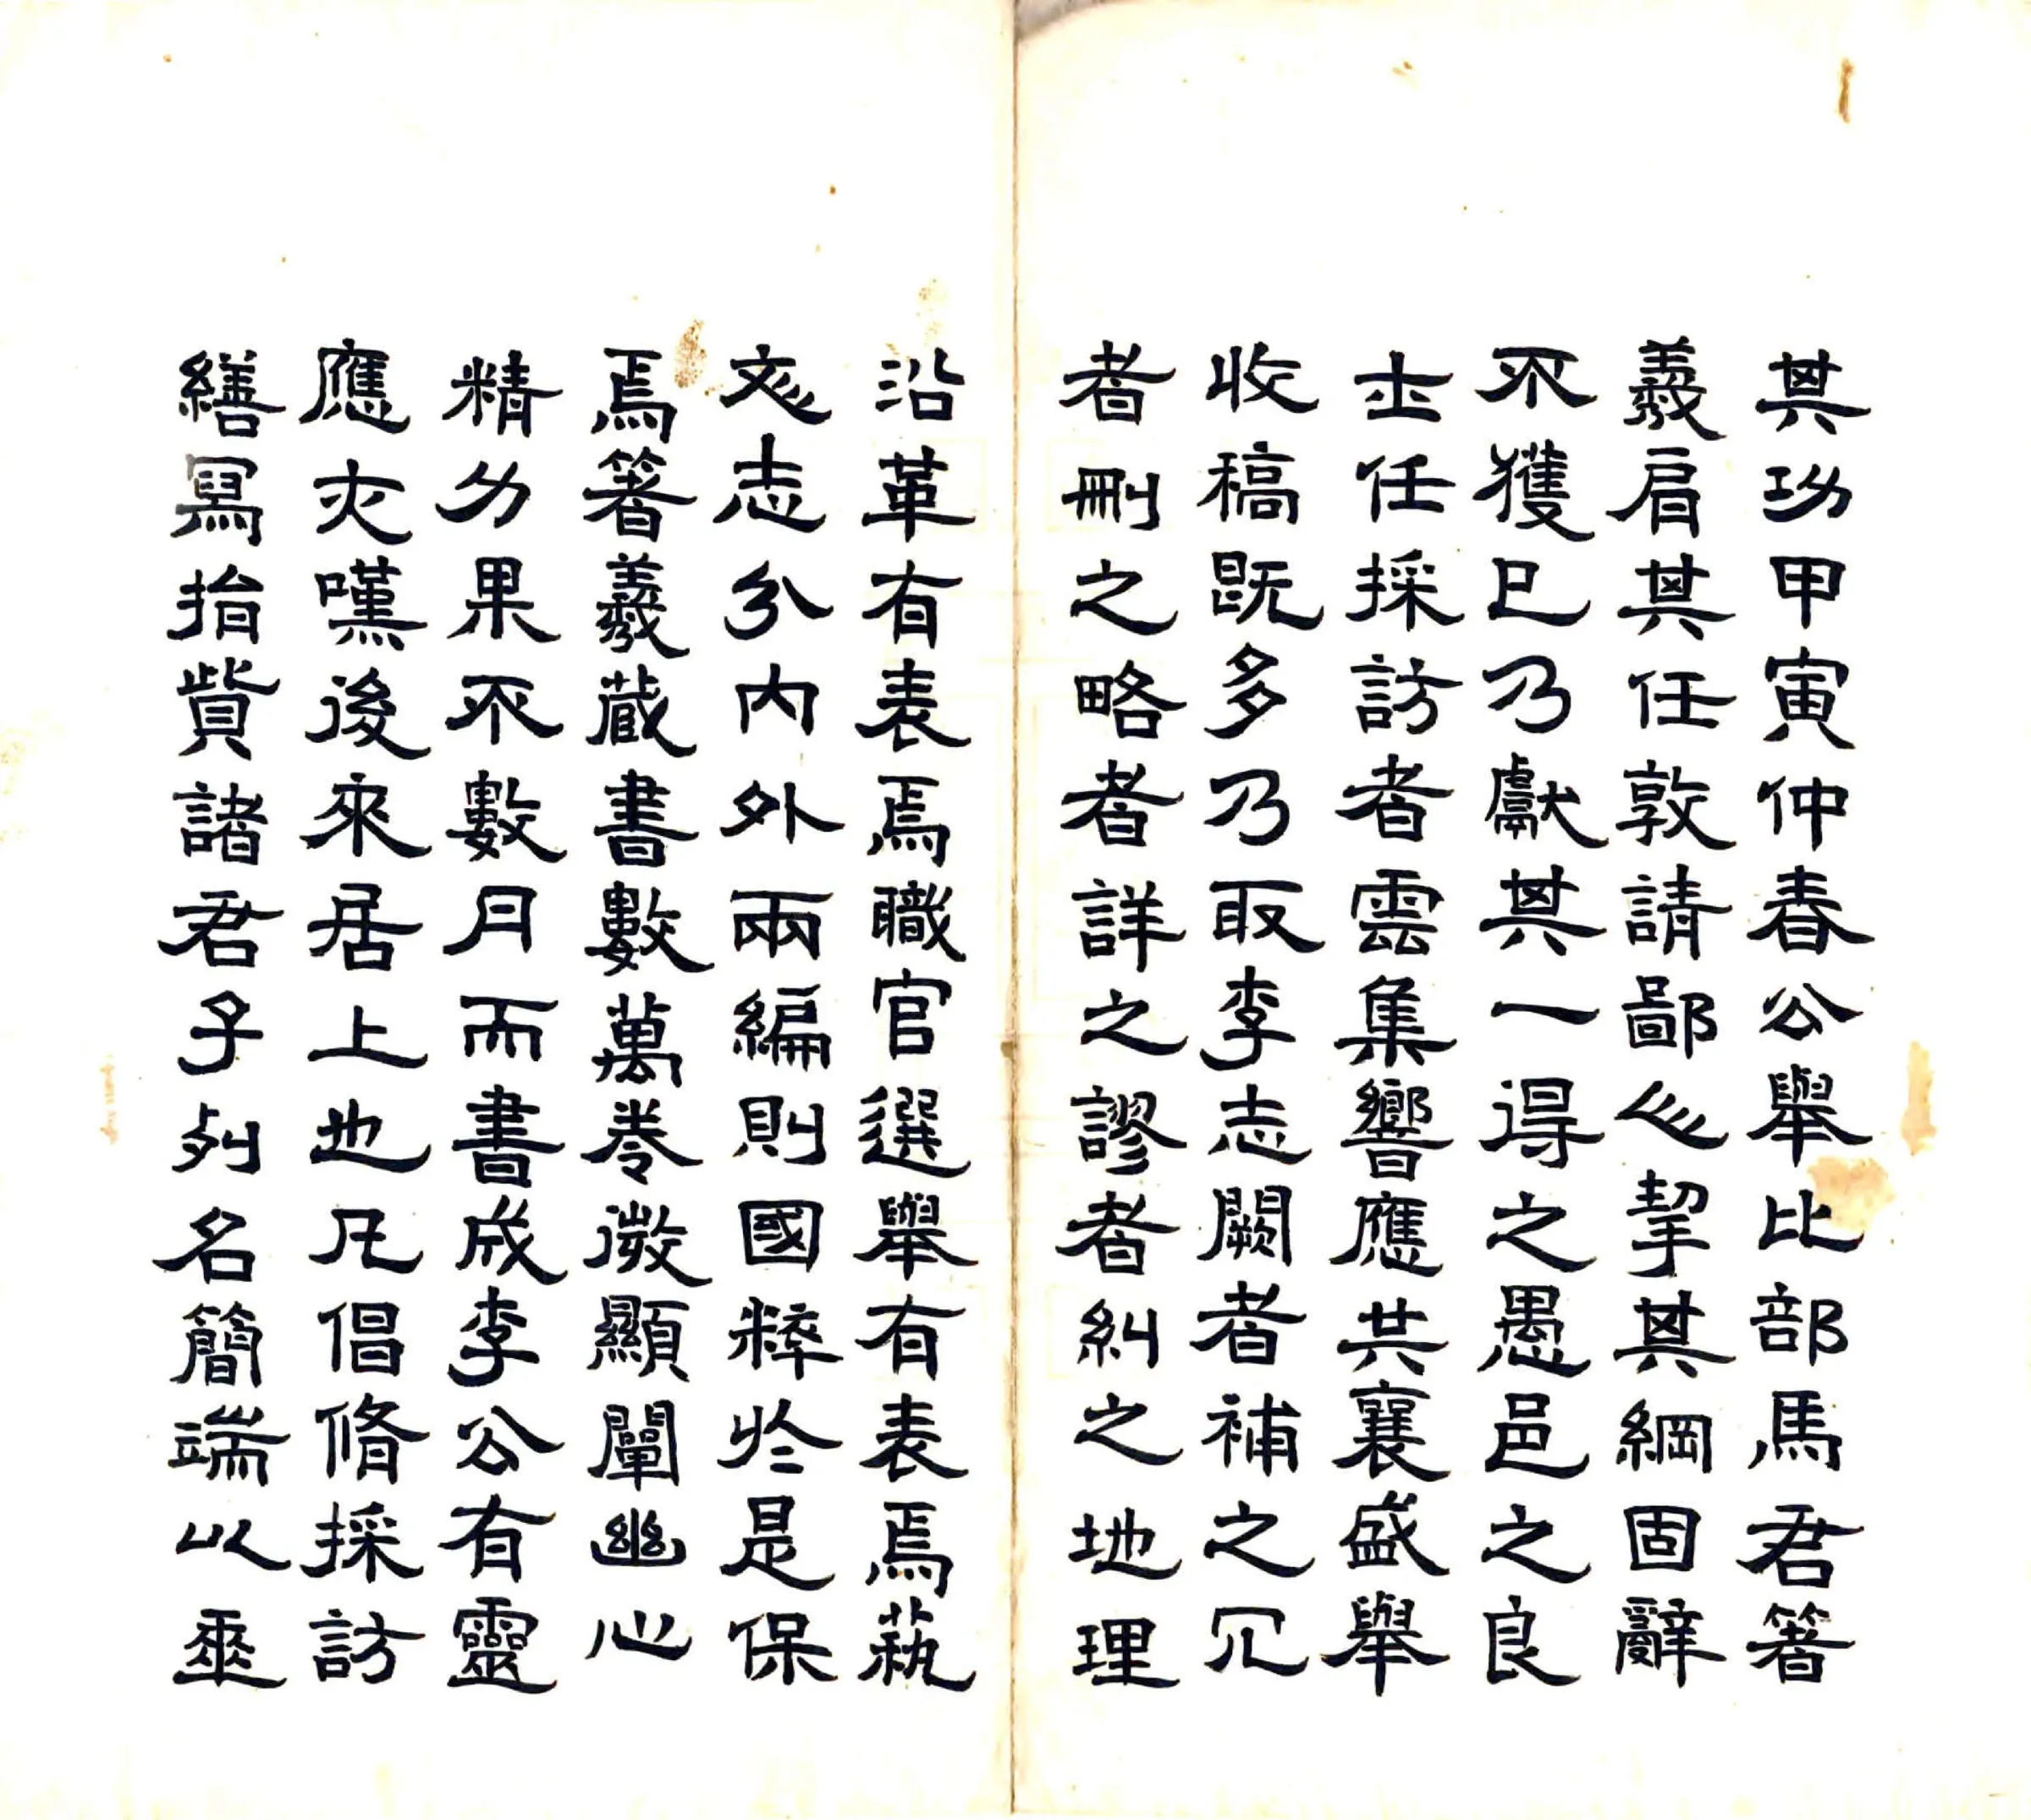 其功甲寅仲春公舉比部馬君箸
羲肩其任敦請鄙心挈其綱固辭
不獲已乃獻其一得之愚邑之良
士任採訪者雲集響應共襄盛舉
收稿既多乃取李志闕者補之冗
者刪之略者詳之謬者糾之地理
沿革有表焉職官選舉有表焉藝
文志分內外兩編則國粹於是保
焉箸羲藏書數萬卷微顯闡幽心
精力果不數月而書成李公有靈
應亦嘆後來居上也凡倡脩採訪
繕寫捐貲諸君子列名簡端以垂